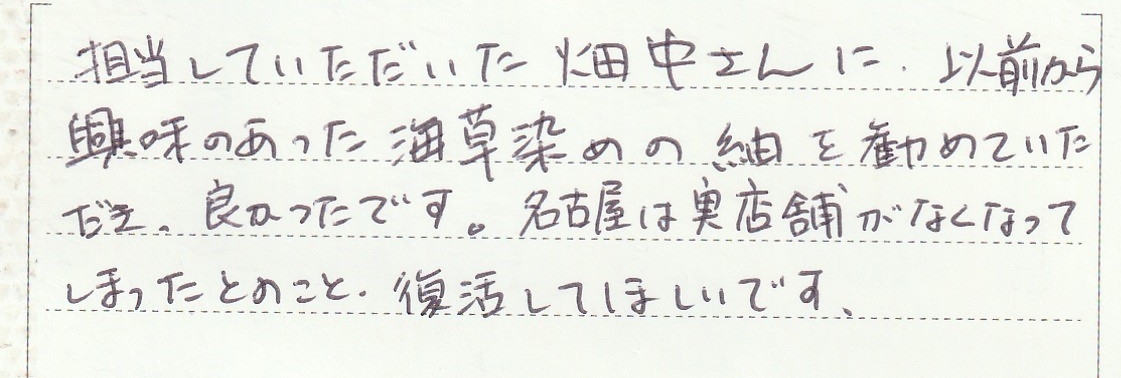 担当していただいた畑中さんに、以前から
興味のあった海草染めの紬を勧めていた
だき、良かったです。名古屋は実店舗がなくなって
しまったとのこと、復活してほしいです、